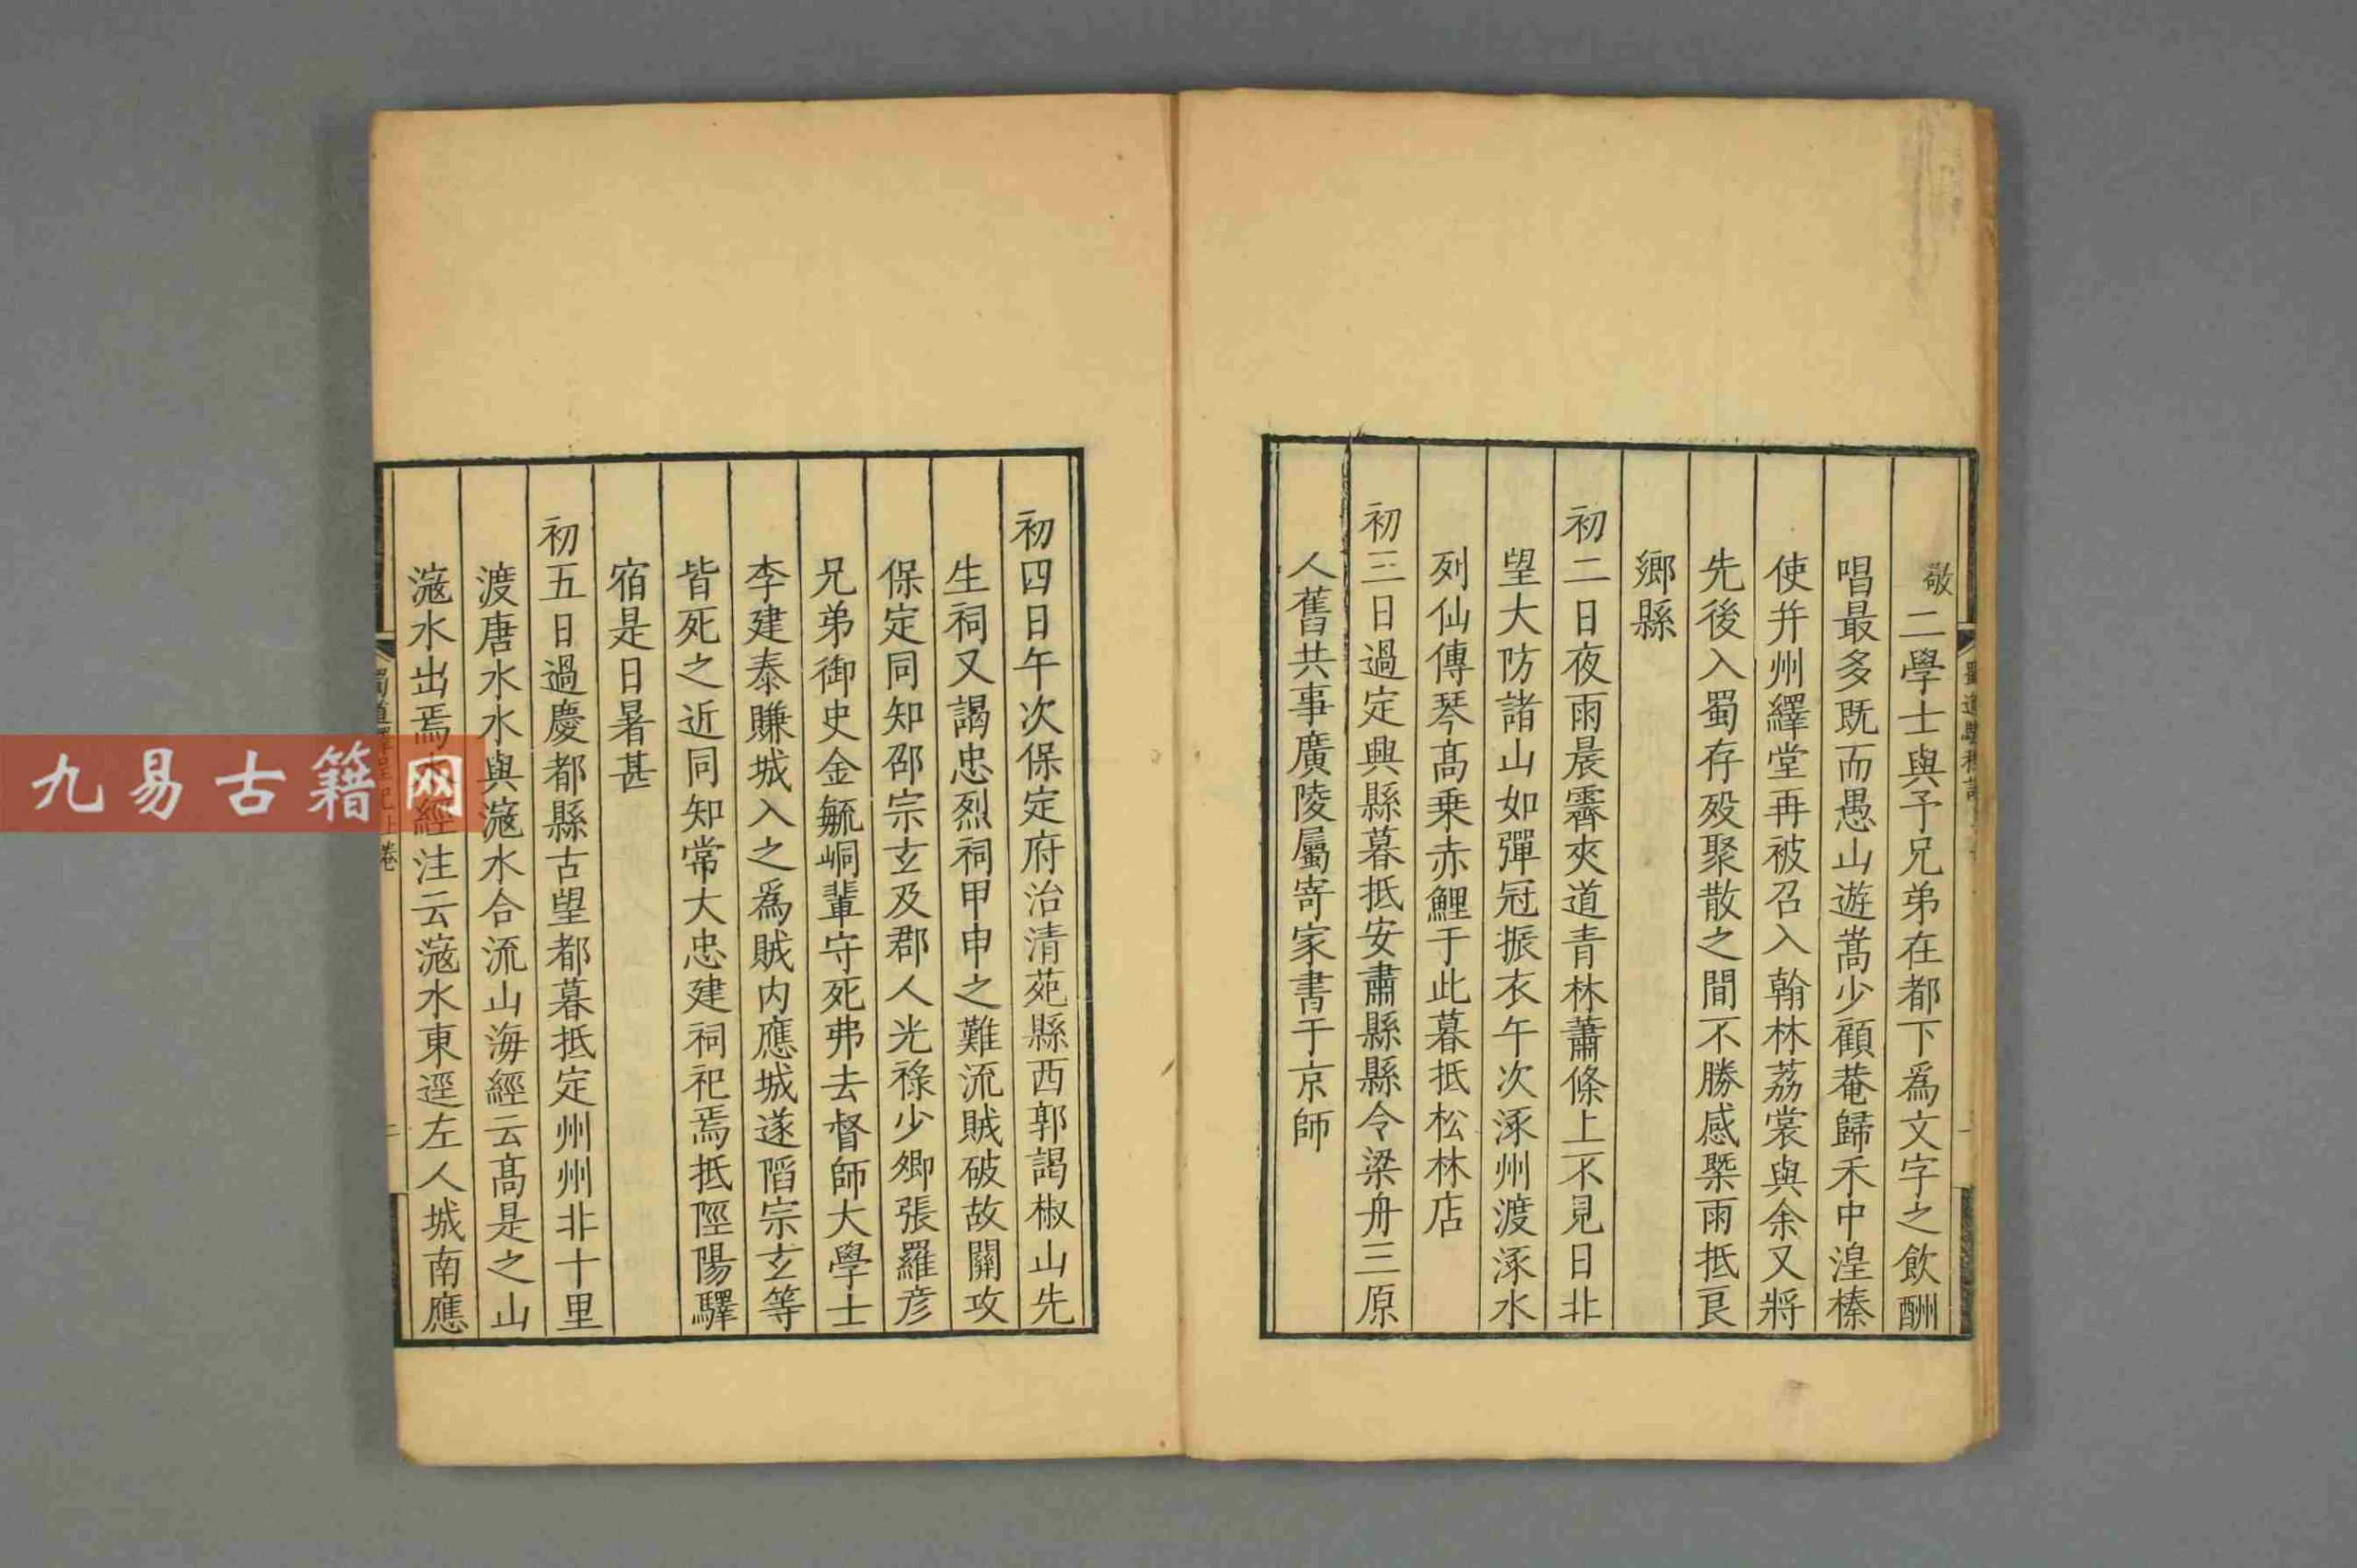 敬二學士與予兄弟在都下爲文字之飲酬
唱最多旣而愚山遊嵩少顧菴歸禾中湟榛
使幷州繹堂再被召入翰林荔裳與余又將
先後入蜀存歿聚散之間不勝感槩雨抵良
鄉縣
初二日夜雨晨霽夾道青林蕭條上不見日非
望大防諸山如彈冠振衣午次涿州渡涿水
列仙傳琴高乗赤鯉于此暮抵松林店
初三日過定興縣暮抵安肅縣縣令梁舟三原
人舊共事廣陵屬寄家書于京師
初四日午次保定府治清苑縣西郭謁椒山先
生祠又謁忠烈祠甲申之難流賊破故關攻
保定同知邵宗玄及郡人光祿少卿張羅彦
兄弟御史金毓峒輩守死弗去督師大學士
李建泰賺城入之爲賊内應城遂䧟宗玄等
皆死之近同知常大忠建祠祀焉抵陘陽驛
宿是日暑甚
初五日過慶都縣古望都暮抵定州州非十里
渡唐水水與滱水合流山海經云髙是之山
滱水出焉水經注云滱水東逕左人城南應
蜀道驛程記上卷
九易古籍网